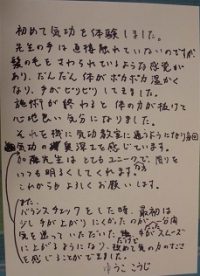 初めて気功を体験しました。
先生の手は直接触れていないのですが
髪の毛をさわられているような感覚が
あり、だんだん体がポカポカ温かく
なり、手がビリビリしてきました。
施術が終わると体の力が抜けて
心地良い気分になりました。
それを機に気功教室に通うようになり毎回
気功の奥深さを感じています。
加藤先生はとてもユニークで、周りを
いつも明るくしてくれます。
これからもよろしくお願いします。
また、
バランスチェックをした時、最初は
少し手が上がりにくかったのが
気を送っていただいた
に上がるようになり、
を感じることができました。
ゆうこ こうじ